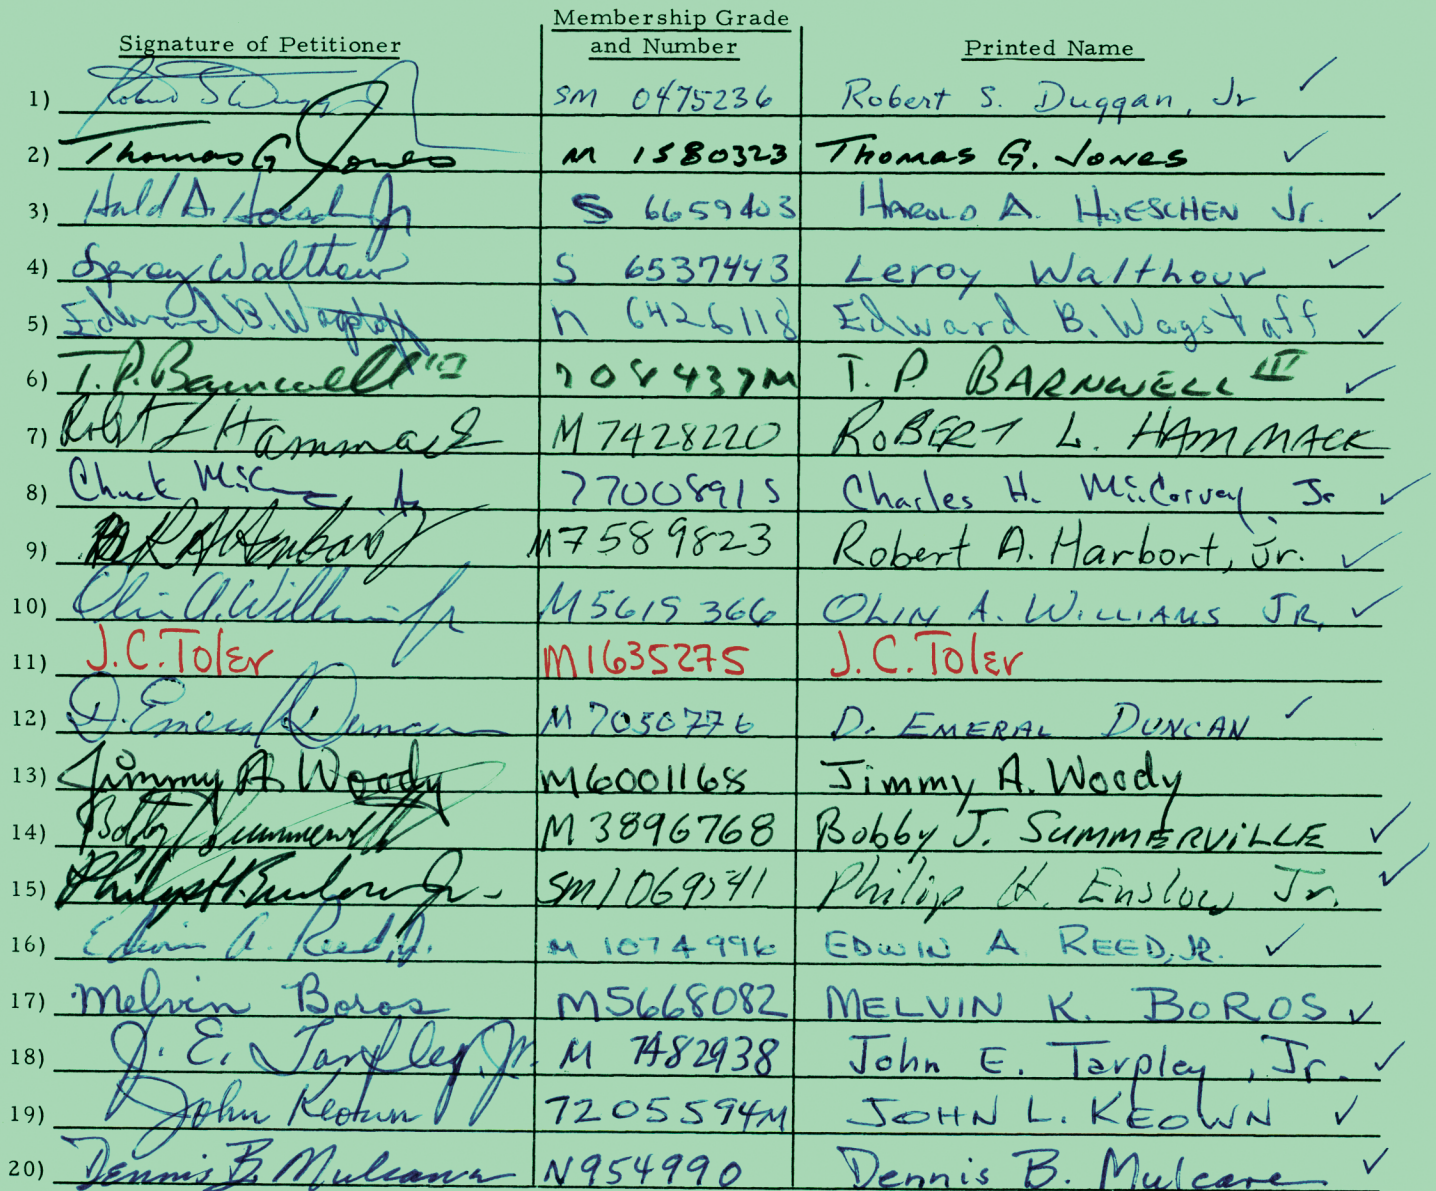 Signature of Petitioner Membership Grade and Number Printed Name
1) Robert S Duggan Jr SM 0475236 Robert S. Duggan, Jr ✓
2) Thomas G Jones M 1580323 Thomas G. Jones ✓
3) Harold A. Hoeschen Jr S 6659403 HAROLD A. HOESCHEN Jr. ✓
4) Leroy Walthour S 6537443 Leroy Walthour ✓
5) Edward B. Wagstaff M 6426118 Edward B. Wagstaff ✓
6) T. P. Barnwell III 7084437M T. P. BARNWELL III ✓
7) Robert L Hammack M 7428220 ROBERT L. HAMMACK
8) Chuck Jr 7700891S Charles H. McCorvey Jr ✓
9) R A Harbort M7589823 Robert A. Harbort, Jr. ✓
10) Olin A. Williams Jr M5615366 OLIN A. WILLIAMS JR. ✓
11) J.C. Toler M1635275 J.C. Toler
12) D. Emeral Duncan M 7050776 D. EMERAL DUNCAN ✓
13) Jimmy A. Woody M6001168 Jimmy A. Woody
14) Bobby J Summerville M 3896768 Bobby J. SUMMERVILLE ✓
15) Philip H. Enslow Jr. SM1069541 Philip H. Enslow Jr. ✓
16) Edwin A. Reed, Jr. M 1074996 EDWIN A. REED, JR. ✓
17) Melvin Boros M5668082 MELVIN K. BOROS ✓
18) J. E. Tarpley, Jr. M 7482938 John E. Tarpley, Jr. ✓
19) John Keown 7205594M JOHN L. KEOWN ✓
20) Dennis B. Mulcare N954990 Dennis B. Mulcare ✓